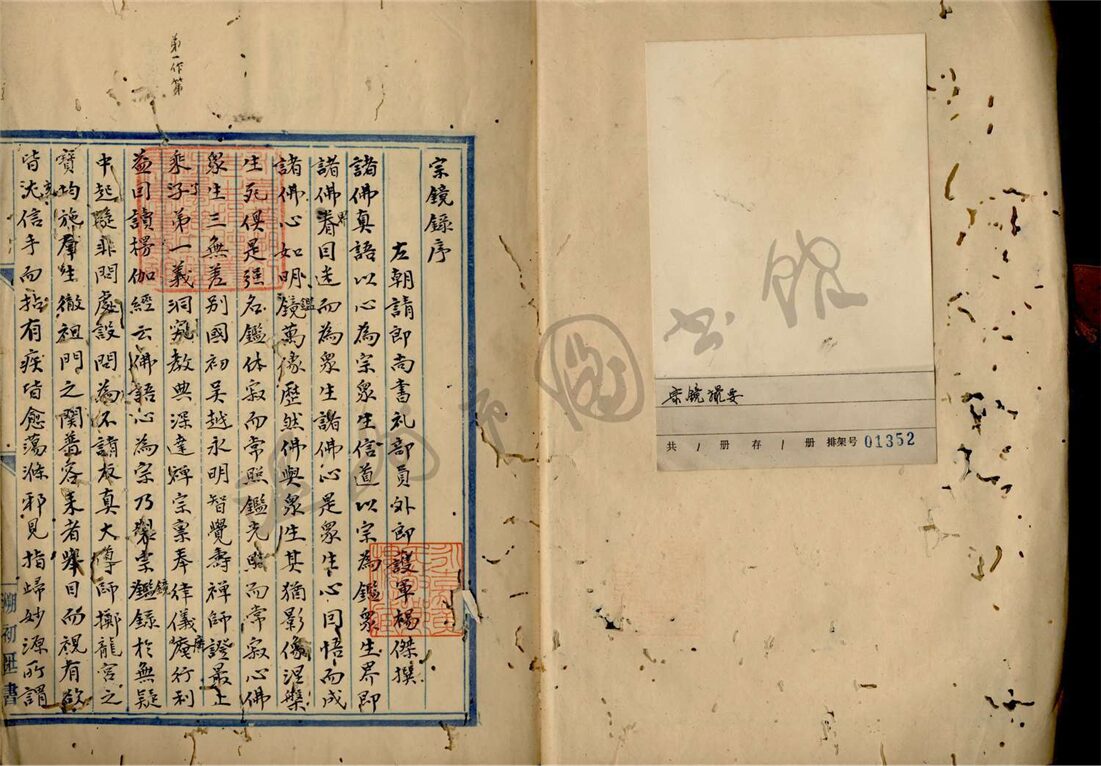 宗镜撮要
共 1 册 存 1 册 排架号 01352
宗鏡錄序
左朝請郎尚書礼部員外郎護軍楊傑撰
諸佛真語以心為宗眾生信道以宗為鑑眾生界即
諸佛眷回迷而為眾生諸佛心是眾生心回悟而成
界
諸佛心如明鏡萬像歷然佛與眾生其猶影像涅槃
鑑
生死俱是强名鑑体寂而常照鑑光照而常寂心佛
眾生三無差别國初吳越永明智覺壽禪師證最上
乘子第一義洞究教典深達禪宗稟奉律儀廣行利
了
益回讀楞伽經云佛語心為宗乃製宗鑑錄於無疑
鏡
中起疑非問處設問為不請友真大導師擲龍宮之
寶均施羣生徹祖門之關普容來者舉目而視有欲
皆充信手而拈有疾皆愈蕩滌邪見指歸妙源所謂
第一作第